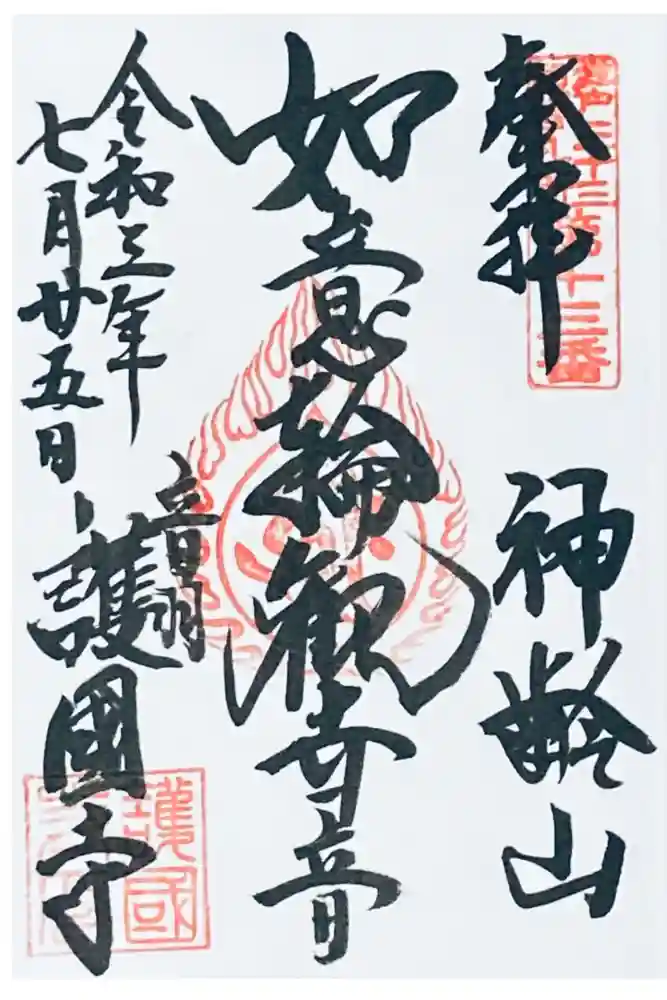 奉拝
三十三
十三番
神齢山
如意輪観世音
令和三年
七月廿五日
音羽
護國寺
護國